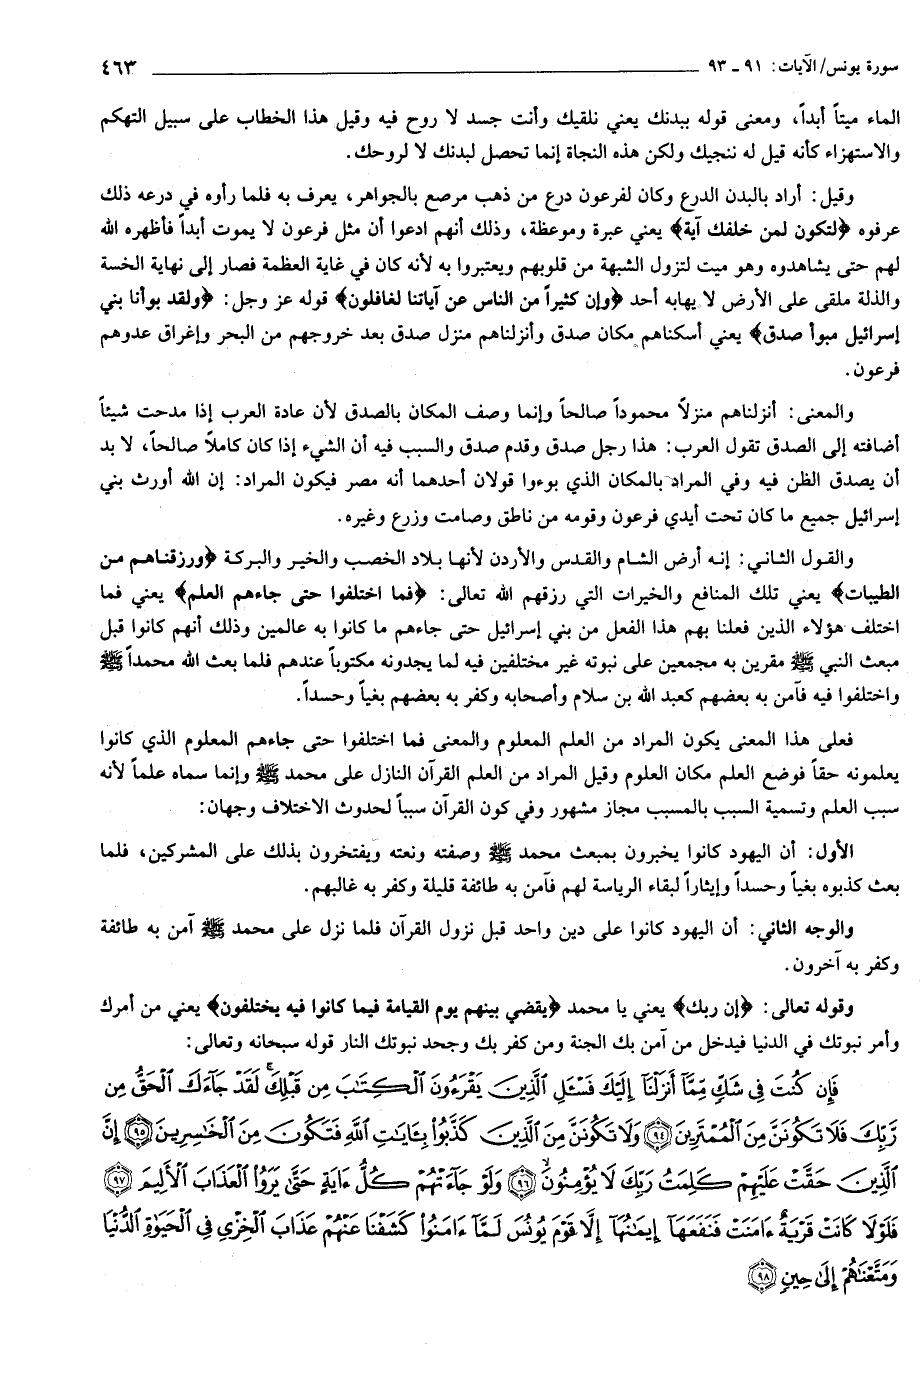 سورة يونس/الآيات: ٩١ ـ ٩٣ ٤٦٣
الماء ميتاً أبداً، ومعنى قوله ببدنك يعني نلقيك وأنت جسد لا روح فيه وقيل هذا الخطاب على سبيل التهكم
والاستهزاء كأنه قيل له ننجيك ولكن هذه النجاة إنما تحصل لبدنك لا لروحك.
وقيل: أراد بالبدن الدرع وكان لفرعون درع من ذهب مرصع بالجواهر، يعرف به فلما رأوه في درعه ذلك
عرفوه ﴿لتكون لمن خلفك آية﴾ يعني عبرة وموعظة، وذلك أنهم ادعوا أن مثل فرعون لا يموت أبداً فأظهره الله
لهم حتى يشاهدوه وهو ميت لتزول الشبهة من قلوبهم ويعتبروا به لأنه كان في غاية العظمة فصار إلى نهاية الخسة
والذلة ملقى على الأرض لا يهابه أحد ﴿وإن كثيراً من الناس عن آياتنا لغافلون﴾ قوله عز وجل: ﴿ولقد بوأنا بني
إسرائيل مبوأ صدق﴾ يعني أسكناهم مكان صدق وأنزلناهم منزل صدق بعد خروجهم من البحر وإغراق عدوهم
فرعون.
والمعنى: أنزلناهم منزلاً محموداً صالحاً وإنما وصف المكان بالصدق لأن عادة العرب إذا مدحت شيئاً
أضافته إلى الصدق تقول العرب: هذا رجل صدق وقدم صدق والسبب فيه أن الشيء إذا كان كاملاً صالحاً، لا بد
أن يصدق الظن فيه وفي المراد بالمكان الذي بوءوا قولان أحدهما أنه مصر فيكون المراد: إن الله أورث بني
إسرائيل جميع ما كان تحت أيدي فرعون وقومه من ناطق وصامت وزرع وغيره.
والقول الثاني: إنه أرض الشام والقدس والأردن لأنها بلاد الخصب والخير والبركة ﴿ورزقناهم من
الطيبات﴾ يعني تلك المنافع والخيرات التي رزقهم الله تعالى: ﴿فما اختلفوا حتى جاءهم العلم﴾ يعني فما
اختلف هؤلاء الذين فعلنا بهم هذا الفعل من بني إسرائيل حتى جاءهم ما كانوا به عالمين وذلك أنهم كانوا قبل
مبعث النبي ﷺ مقرين به مجمعين على نبوته غير مختلفين فيه لما يجدونه مكتوباً عندهم فلما بعث الله محمداً ﷺ
واختلفوا فيه فآمن به بعضهم كعبد الله بن سلام وأصحابه وكفر به بعضهم بغياً وحسداً.
فعلى هذا المعنى يكون المراد من العلم المعلوم والمعنى فما اختلفوا حتى جاءهم المعلوم الذي كانوا
يعلمونه حقاً فوضع العلم مكان العلوم وقيل المراد من العلم القرآن النازل على محمد ﷺ وإنما سماه علماً لأنه
سبب العلم وتسمية السبب بالمسبب مجاز مشهور وفي كون القرآن سبباً لحدوث الاختلاف وجهان:
الأول: أن اليهود كانوا يخبرون بمبعث محمد ﷺ وصفته ونعته ويفتخرون بذلك على المشركين، فلما
بعث كذبوه بغياً وحسداً وإيثاراً لبقاء الرياسة لهم فآمن به طائفة قليلة وكفر به غالبهم.
والوجه الثاني: أن اليهود كانوا على دين واحد قبل نزول القرآن فلما نزل على محمد ﷺ آمن به طائفة
وكفر به آخرون.
وقوله تعالى: ﴿إن ربك﴾ يعني يا محمد ﴿يقضي بينهم يوم القيامة فيما كانوا فيه يختلفون﴾ يعني من أمرك
وأمر نبوتك في الدنيا فيدخل من آمن بك الجنة ومن كفر بك وجحد نبوتك النار قوله سبحانه وتعالى:
فَإِن كُنتَ فِي شَكٍّ مِّمَّآ أَنزَلْنَآ إِلَيْكَ فَسْـَٔلِ ٱلَّذِينَ يَقْرَءُونَ ٱلْكِتَٰبَ مِن قَبْلِكَ ۚ لَقَدْ جَآءَكَ ٱلْحَقُّ مِن
رَّبِّكَ فَلَا تَكُونَنَّ مِنَ ٱلْمُمْتَرِينَ ﴿٩٤﴾ وَلَا تَكُونَنَّ مِنَ ٱلَّذِينَ كَذَّبُوا۟ بِـَٔايَٰتِ ٱللَّهِ فَتَكُونَ مِنَ ٱلْخَٰسِرِينَ ﴿٩٥﴾ إِنَّ
ٱلَّذِينَ حَقَّتْ عَلَيْهِمْ كَلِمَتُ رَبِّكَ لَا يُؤْمِنُونَ ۙ ﴿٩٦﴾ وَلَوْ جَآءَتْهُمْ كُلُّ ءَايَةٍ حَتَّىٰ يَرَوُا۟ ٱلْعَذَابَ ٱلْأَلِيمَ ﴿٩٧﴾
فَلَوْلَا كَانَتْ قَرْيَةٌ ءَامَنَتْ فَنَفَعَهَآ إِيمَٰنُهَآ إِلَّا قَوْمَ يُونُسَ لَمَّآ ءَامَنُوا۟ كَشَفْنَا عَنْهُمْ عَذَابَ ٱلْخِزْيِ فِي ٱلْحَيَوٰةِ ٱلدُّنْيَا
وَمَتَّعْنَٰهُمْ إِلَىٰ حِينٍ ﴿٩٨﴾